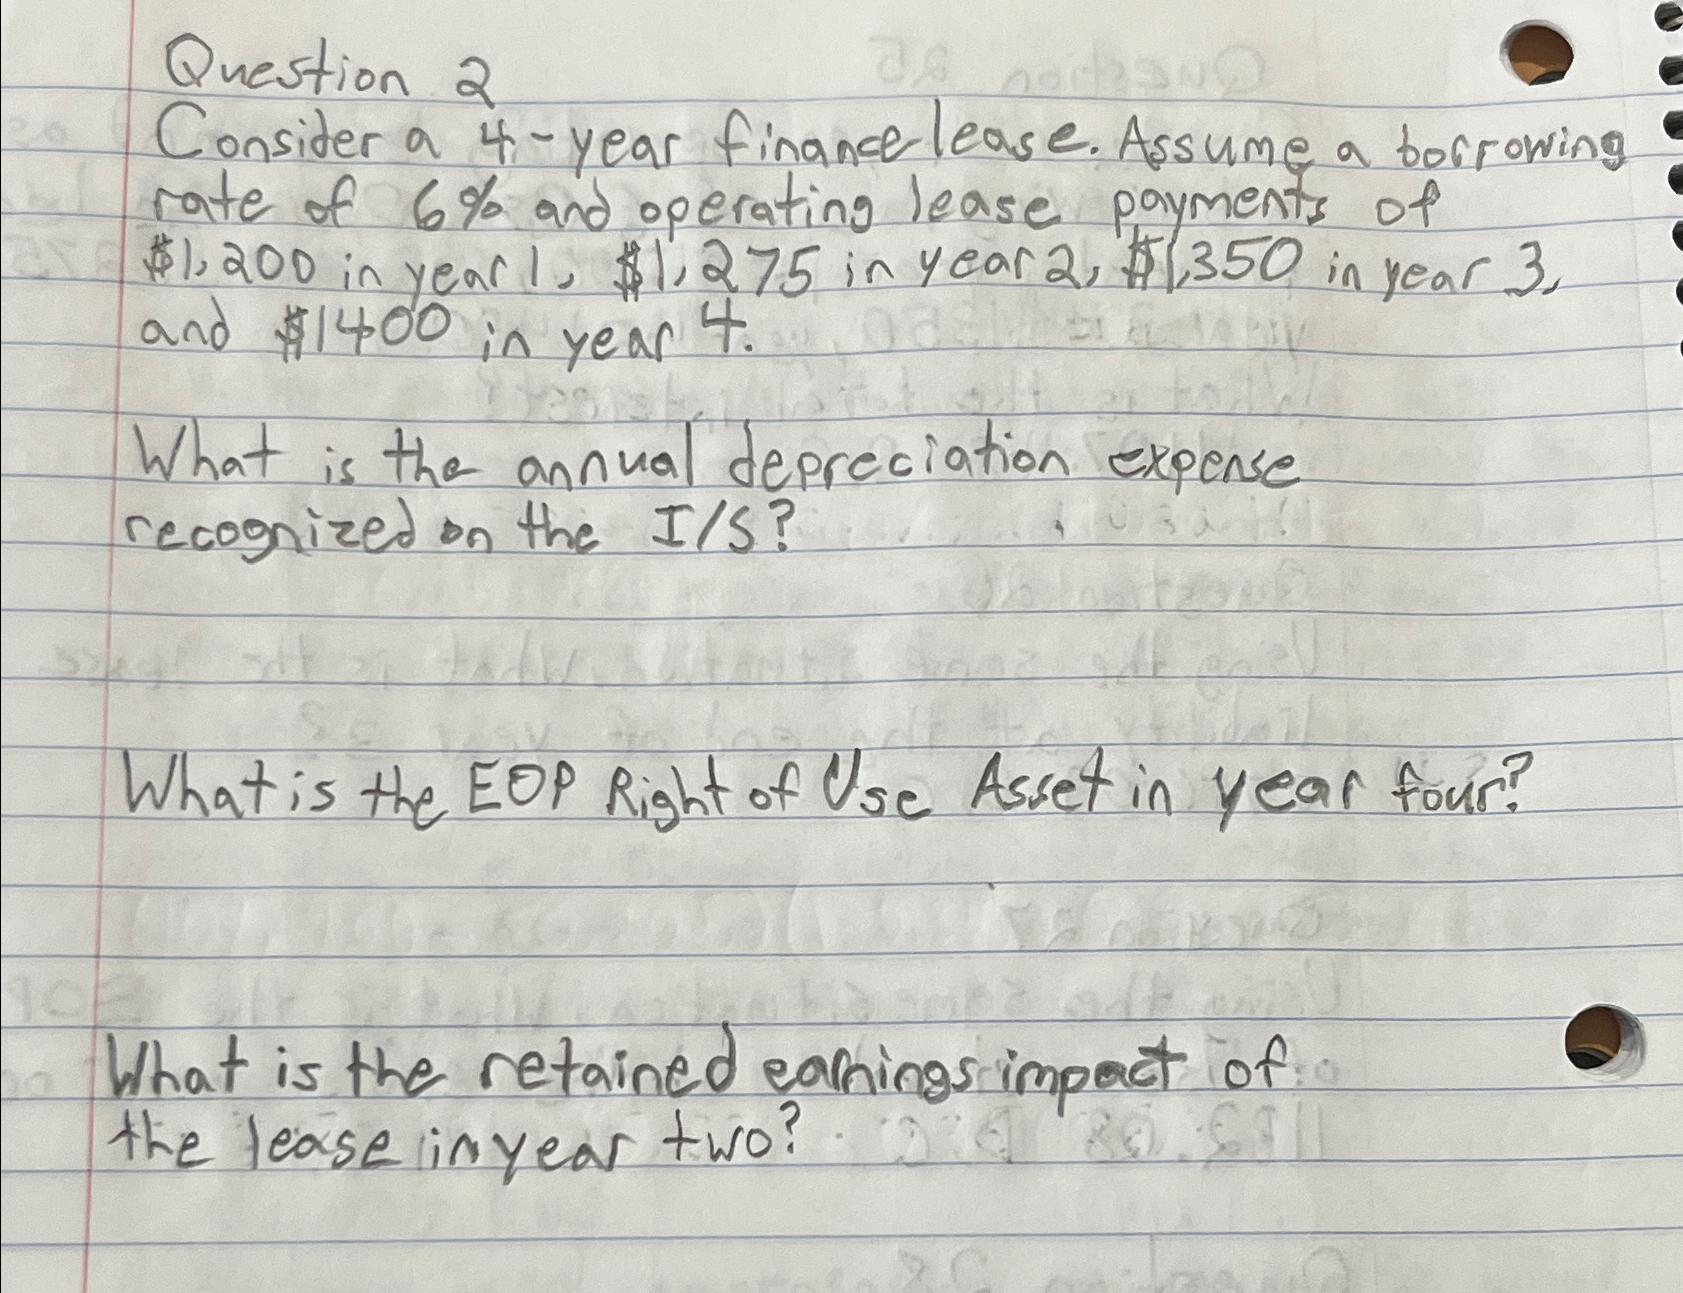 Question 2
Consider a 4-year finance lease. Assume a borrowing
rate of 6% and operating lease payments of
$1,200 in year 1, $1,275 in year 2, $1,350 in year 3,
and $1400 in year 4.
What is the annual depreciation expense
recognized on the I/S?
What is the EOP Right of Use Asset in year four?
What is the retained earnings impact of
the lease in year two?